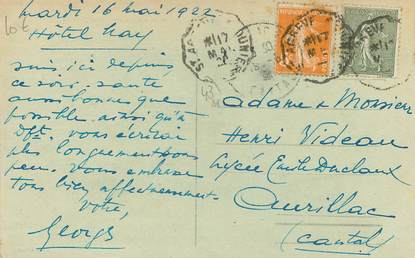 mardi 16 mai 1922
Hôtel Nay
suis ici depuis
ce soir, santé
aussi bonne que
possible ainsi qu'à
vous écrirai
plus longuement sous
peu. vous embrasse
tous bien affectueusement.
Votre,
Georges
43
Madame & Monsieur
Henri Videau
Lycée Emile Duclaux
Aurillac
(Cantal)